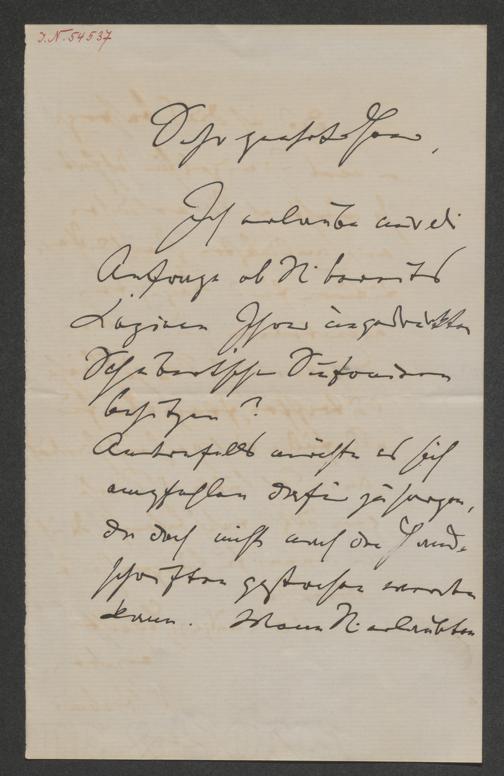 I.N. 54537
Sehr geehrter Herr,
Ich erlaube mir die
Anfrage ob Sie bereits
Copieen Ihrer ungedruckten
Schubertschen Sinfonieen
besitzen?
Andernfalls möchte es sich
empfehlen dafür zu sorgen,
da doch nicht nach den Hand-
schriften gestochen werden
kann. Wenn Sie erlaubten